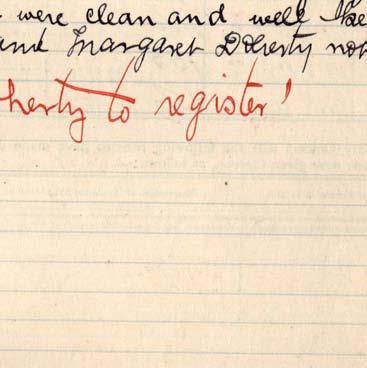 were clean and well ke
and Margaret Doherty not
herty to register'